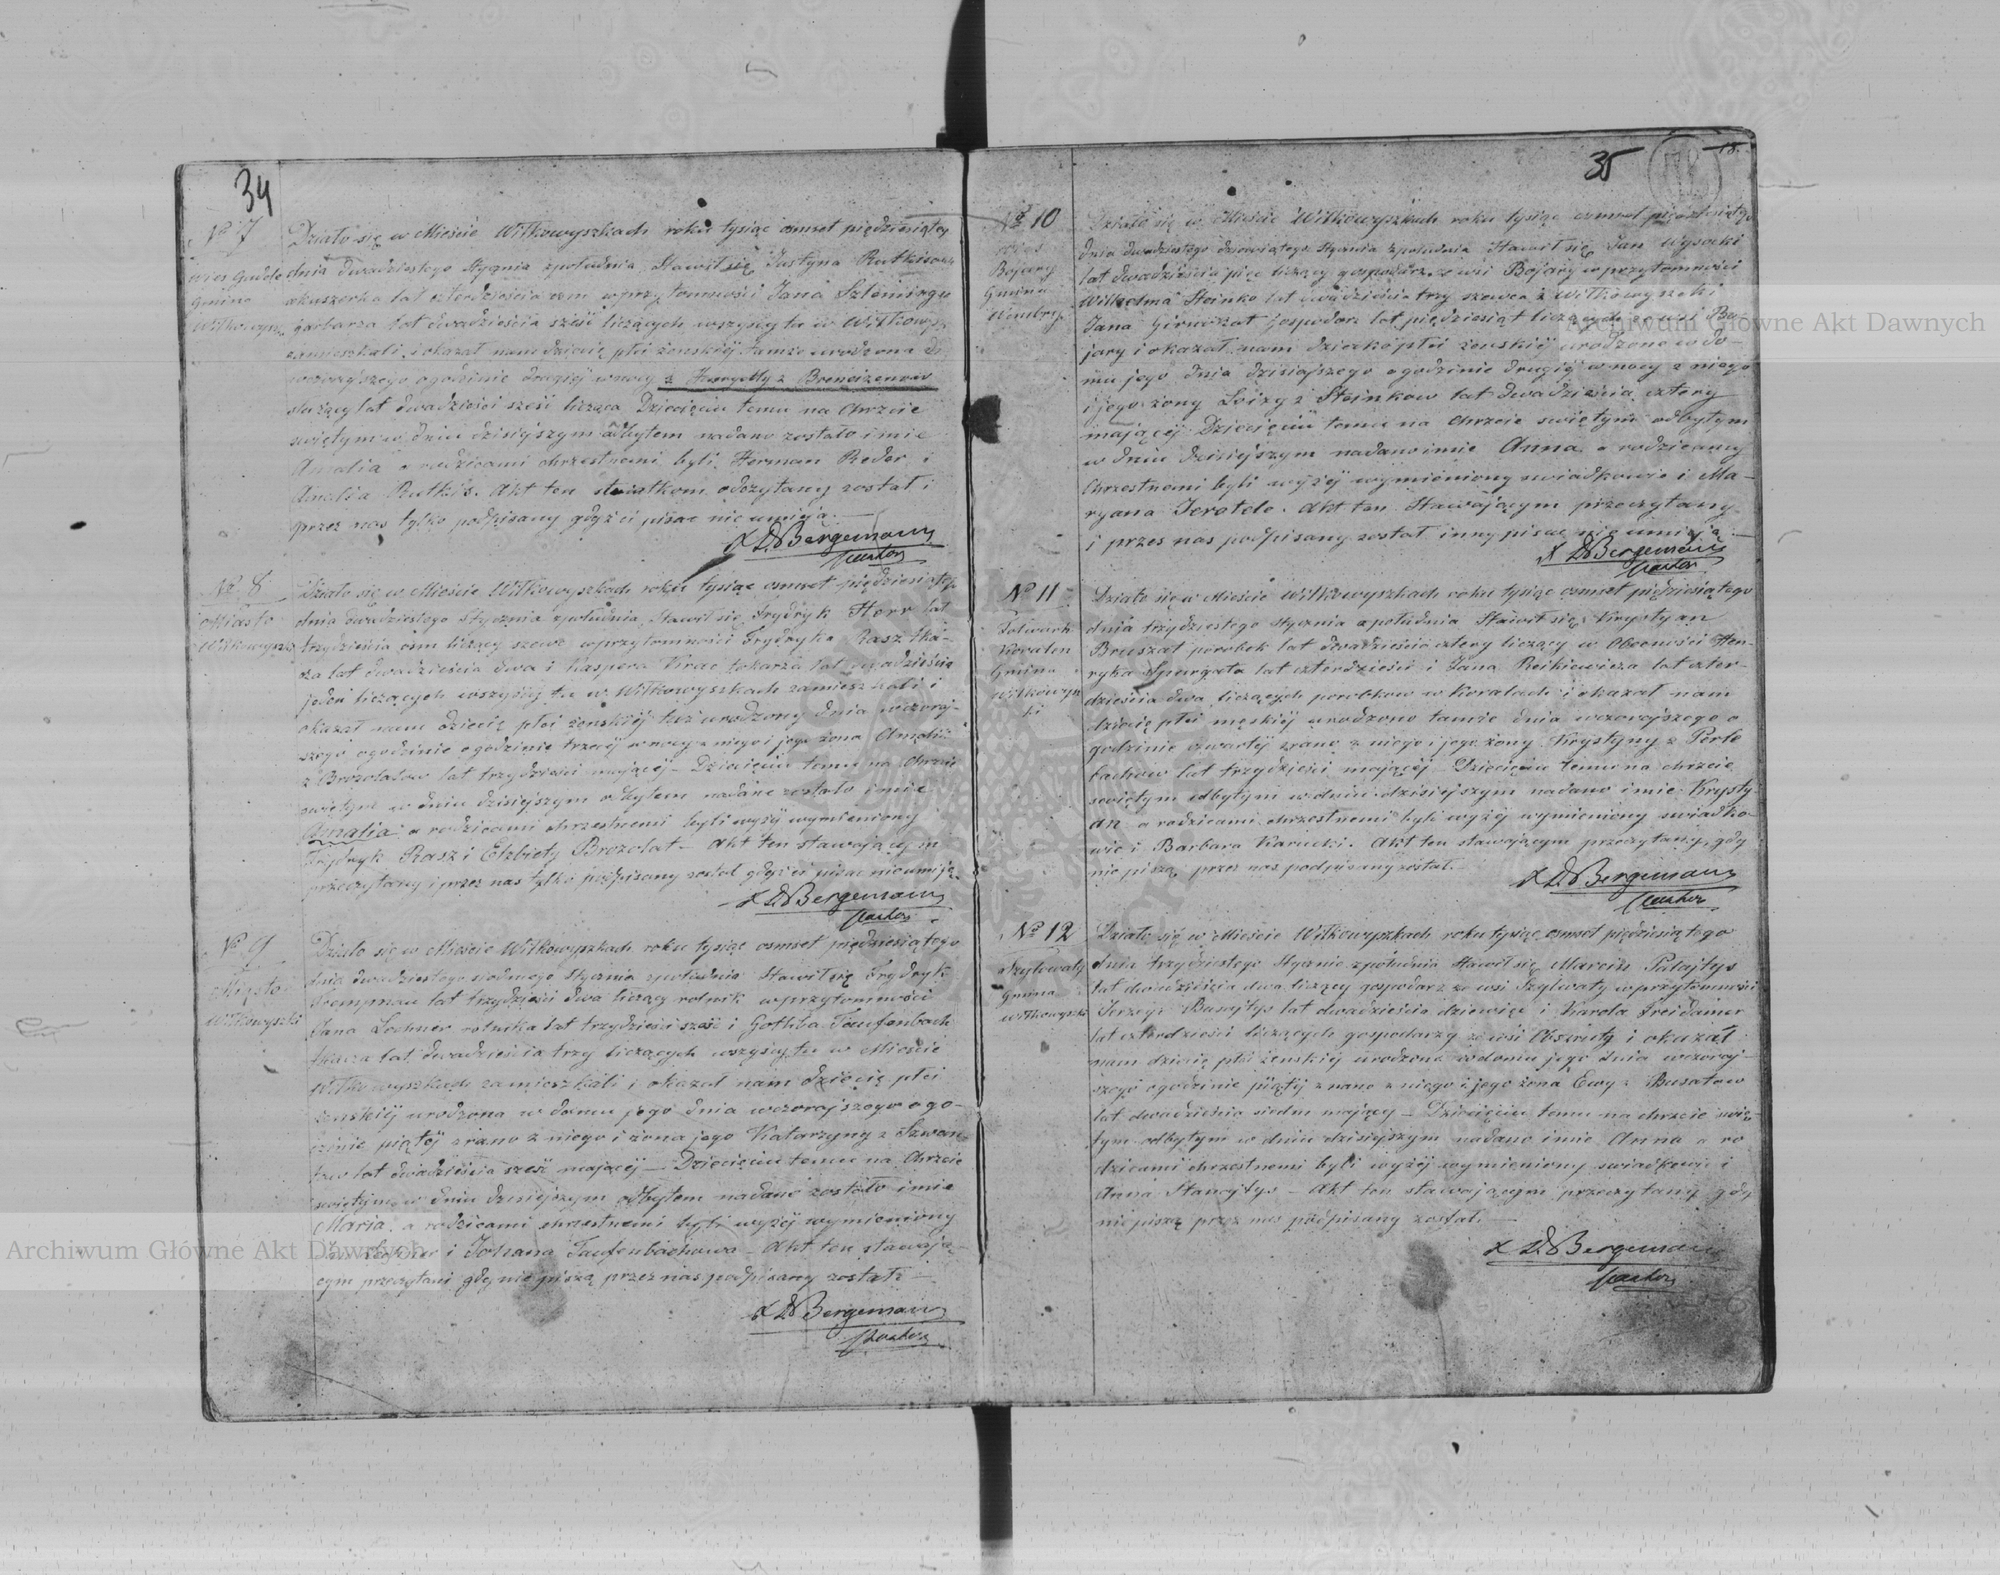 34
№ 7
wieś Gudele
Gmina
Wiłkowyszki
Działo się w Mieście Wiłkowyszkach roku tysiąc osmset piędziesiątego
dnia dwadziestego Stycznia zpołudnia Stawił się Justyna Rutkisowa
akuszerka lat czterdzieścia wprzytomności Jana Szleminga
garbarza lat dwadzieścia sześć liczących wszyscy tu w Wiłkowysz
zamieszkali, i okazał nam dziecię płci żenskiéj tamże urodzona d.
wczorajszego ogodzinie drugiéj wnocy z
służący lat dwadzieści sześć licząca Dziecięciu temu na Chrzcie
świętym w dniu dzisiejszym odbytem nadano zostało imie
Amalia a rodzicami chrzestnemi byli Herman Reder i
Amalia Rutkis. Akt ten swiatkom odczytany został i
przez nas tylko podpisany gdyż ci pisac nie umieją.
X D Bergemann
Pastor
№ 8
Miasto
Wiłkowyszki
Działo się w Mieście Wiłkowyszkach roku tysiąc osmset piędziesiątego
dnia dwadziestego Stycznia zpołudnia Stawił się Frydryk Horr lat
trzydzieścia osm liczący szewc wprzytomności Frydryka Rasz tka-
cza lat dwadzieścia dwa i Kaspera Kirac tokarza lat dwadzieścia
jeden liczących wszyscy tu w Wiłkowyszkach zamieszkali i
okazał nam dziecię płci żenskiéj tuż urodzony dnia wczoraj-
szego ogodzinie ogodzinie trzeciéj w nocy z niego i jego żona Amalii
z Brozolatow lat trzydzieści mającéj — Dziecięciu temu na Chrzcie
świętym w dniu dzisiejszym odbytem nadane zostało imie
Amalia a rodzicami chrzestnemi byli wyżéj wymieniony
Frydryk Rasz i Elzbiety Brozolat — Akt ten stawającym
przeczytany i przez nas tylko podpisany został gdyż ci pisac nieumieją.
X D Bergemann
Pastor
№ 9
Miasto
Wiłkowyszki
Działo się w Mieście Wiłkowyszkach roku tysiąc osmset piędziesiątego
dnia dwadziestego siodmego Stycznia zpołudnia Stawił się Frydryk
Stempman lat trzydzieści dwa liczący rolnik wprzytomności
Jana Lochner rolnika lat trzydzieści sześć i Gotliba Taufenbach
tkacza lat dwadzieścia trzy liczących wszyscy tu w Mieście
Wiłkowyszkach zamieszkali i okazał nam dziecię płci
żenskiéj urodzona w domu jego dnia wczorajszego ogo-
dzinie piątéj z rano z niego i żona jego Katarzyny z
lat dwadzieścia sześć mającéj — Dziecięciu temu na Chrzcie
świętym w dniu dzisiejszym odbytem nadane zostało imie
Maria, a rodzicami chrzestnemi byli wyżéj wymieniony
Jan Lochner i Johana Taufenbachowa — Akt ten stawają-
cym przeczytani gdy nie piszą przez nas podpisany został —
X D Bergemann
Pastor
35
18.
№ 10
Wieś
Bojary
Gmina
Działo się w Mieście Wiłkowyszkach roku tysiąc osmset piędziesiątego
dnia dwadziestego dziewiątego Stycznia zpołudnia Stawił się Jan Wysocki
lat dwadzieścia pięc liczący gospodarz ze wsi Bojary w przytomności
Wilhelma Steinke lat dwadzieścia trzy szewca z Wiłkowyszek i
Jana Girniszat gospodarz lat piędziesiąt liczących ze wsi Bo-
jary i okazał nam dziecko płci żenskiéj urodzone w do-
mu jego dnia dzisiajszego ogodzinie drugiéj w nocy z niego
i jego żony Loizy z Steinkow lat dwadzieścia cztery
mającéj Dziecięciu temu na Chrzcie świętym odbytym
w dniu dzisiejszym nadano imie Anna a rodzicamy
Chrzestnemi byli wyżéj wymieniony swiadkowie i Ma-
ryana Jerotele. Akt ten Stawającym przeczytany
i przez nas podpisany został inny pisac nie umieją.
X D Bergemann
Pastor
№ 11
Folwark
Koralen
Gmina
Wiłkowysz
ki
Działo się w Mieście Wiłkowyszkach roku tysiąc osmset piędziesiątego
dnia trzydziestego Stycznia zpołudnia Stawił się Krystyan
Bruszat porobek lat dwadzieścia cztery liczący w Obecności Hen-
ryka Spurgata lat czterdzieści i Jana Reikiewicza lat czter-
dzieścia dwa liczących porobkow w Koralach i okazał nam
dziecię płci męskiéj urodzono tamże dnia wczorajszego o
godzinie czwartéj zrana z niego i jego żony Krystyny z Perle
bachow lat trzydzieści mającéj. Dziecięciu temu na chrzcie
swiętym odbytym w dniu dzisiejszym nadano imie Krysty-
an a rodzicami chrzestnemi byli wyżéj wymieniony swiadko-
wie i Barbara Karucki. Akt ten stawającym przeczytany, gdy
nie piszą przez nas podpisany został.
X D Bergemann
Pastor
№ 12
Szylwaty
Gmina
Wiłkowyszki
Działo się w Mieście Wiłkowyszkach roku tysiąc osmset piędziesiątego
dnia trzydziestego Stycznia zpołudnia Stawił się Marcin Palajtys
lat dwadzieścia dwa liczący gospodarz ze wsi Szylwaty w przytomności
Jerzego Busajtys lat dwadzieścia dziewięc i Karola Freidamer
lat czterdzieści liczących gospodarzy ze wsi Obszruty i okazał
nam dziecię płci żenskiéj urodzone w domu jego dnia wczoraj-
szego ogodzinie piątéj z rano z niego i jego żona Ewy z Busatow
lat dwadzieścia siedm mającéj — Dziecięciu temu na chrzcie swię-
tym odbytym w dniu dzisiejszym nadano imie Anna a ro
dzicami chrzestnemi byli wyżéj wymieniony swiadkowie i
Anna Stancytys — Akt ten stawającym przeczytany gdy
nie piszą przez nas podpisany został.
X D Bergemann
Pastor
Archiwum Główne Akt Dawnych
Archiwum Główne Akt Dawnych